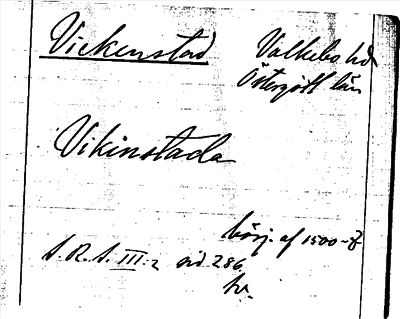 Vickenstad
Valkebo hd
Östergötl län
Vikinstada
börj. af 1500-t
S. R. S. III:2 sid 286
hr.